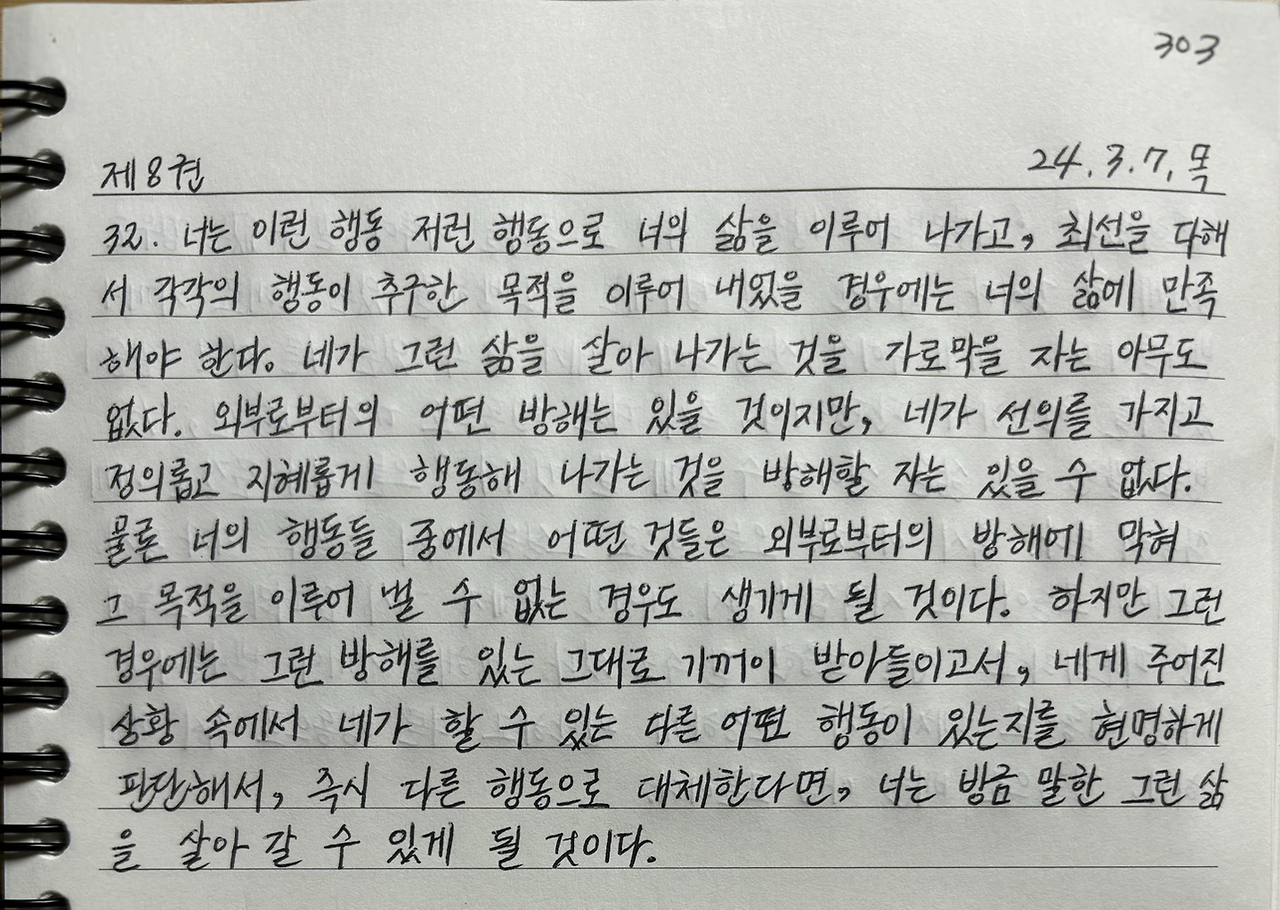 303
제8권 24.3.7.목
32. 너는 이런 행동 저런 행동으로 너의 삶을 이루어 나가고, 최선을 다해
서 각각의 행동이 추구한 목적을 이루어 내었을 경우에는 너의 삶에 만족
해야 한다. 네가 그런 삶을 살아 나가는 것을 가로막을 자는 아무도
없다. 외부로부터의 어떤 방해는 있을 것이지만, 네가 선의를 가지고
정의롭고 지혜롭게 행동해 나가는 것을 방해할 자는 있을 수 없다.
물론 너의 행동들 중에서 어떤 것들은 외부로부터의 방해에 막혀
그 목적을 이루어 낼 수 없는 경우도 생기게 될 것이다. 하지만 그런
경우에는 그런 방해를 있는 그대로 기꺼이 받아들이고서, 네게 주어진
상황 속에서 네가 할 수 있는 다른 어떤 행동이 있는지를 현명하게
판단해서, 즉시 다른 행동으로 대체한다면, 너는 방금 말한 그런 삶
을 살아 갈 수 있게 될 것이다.